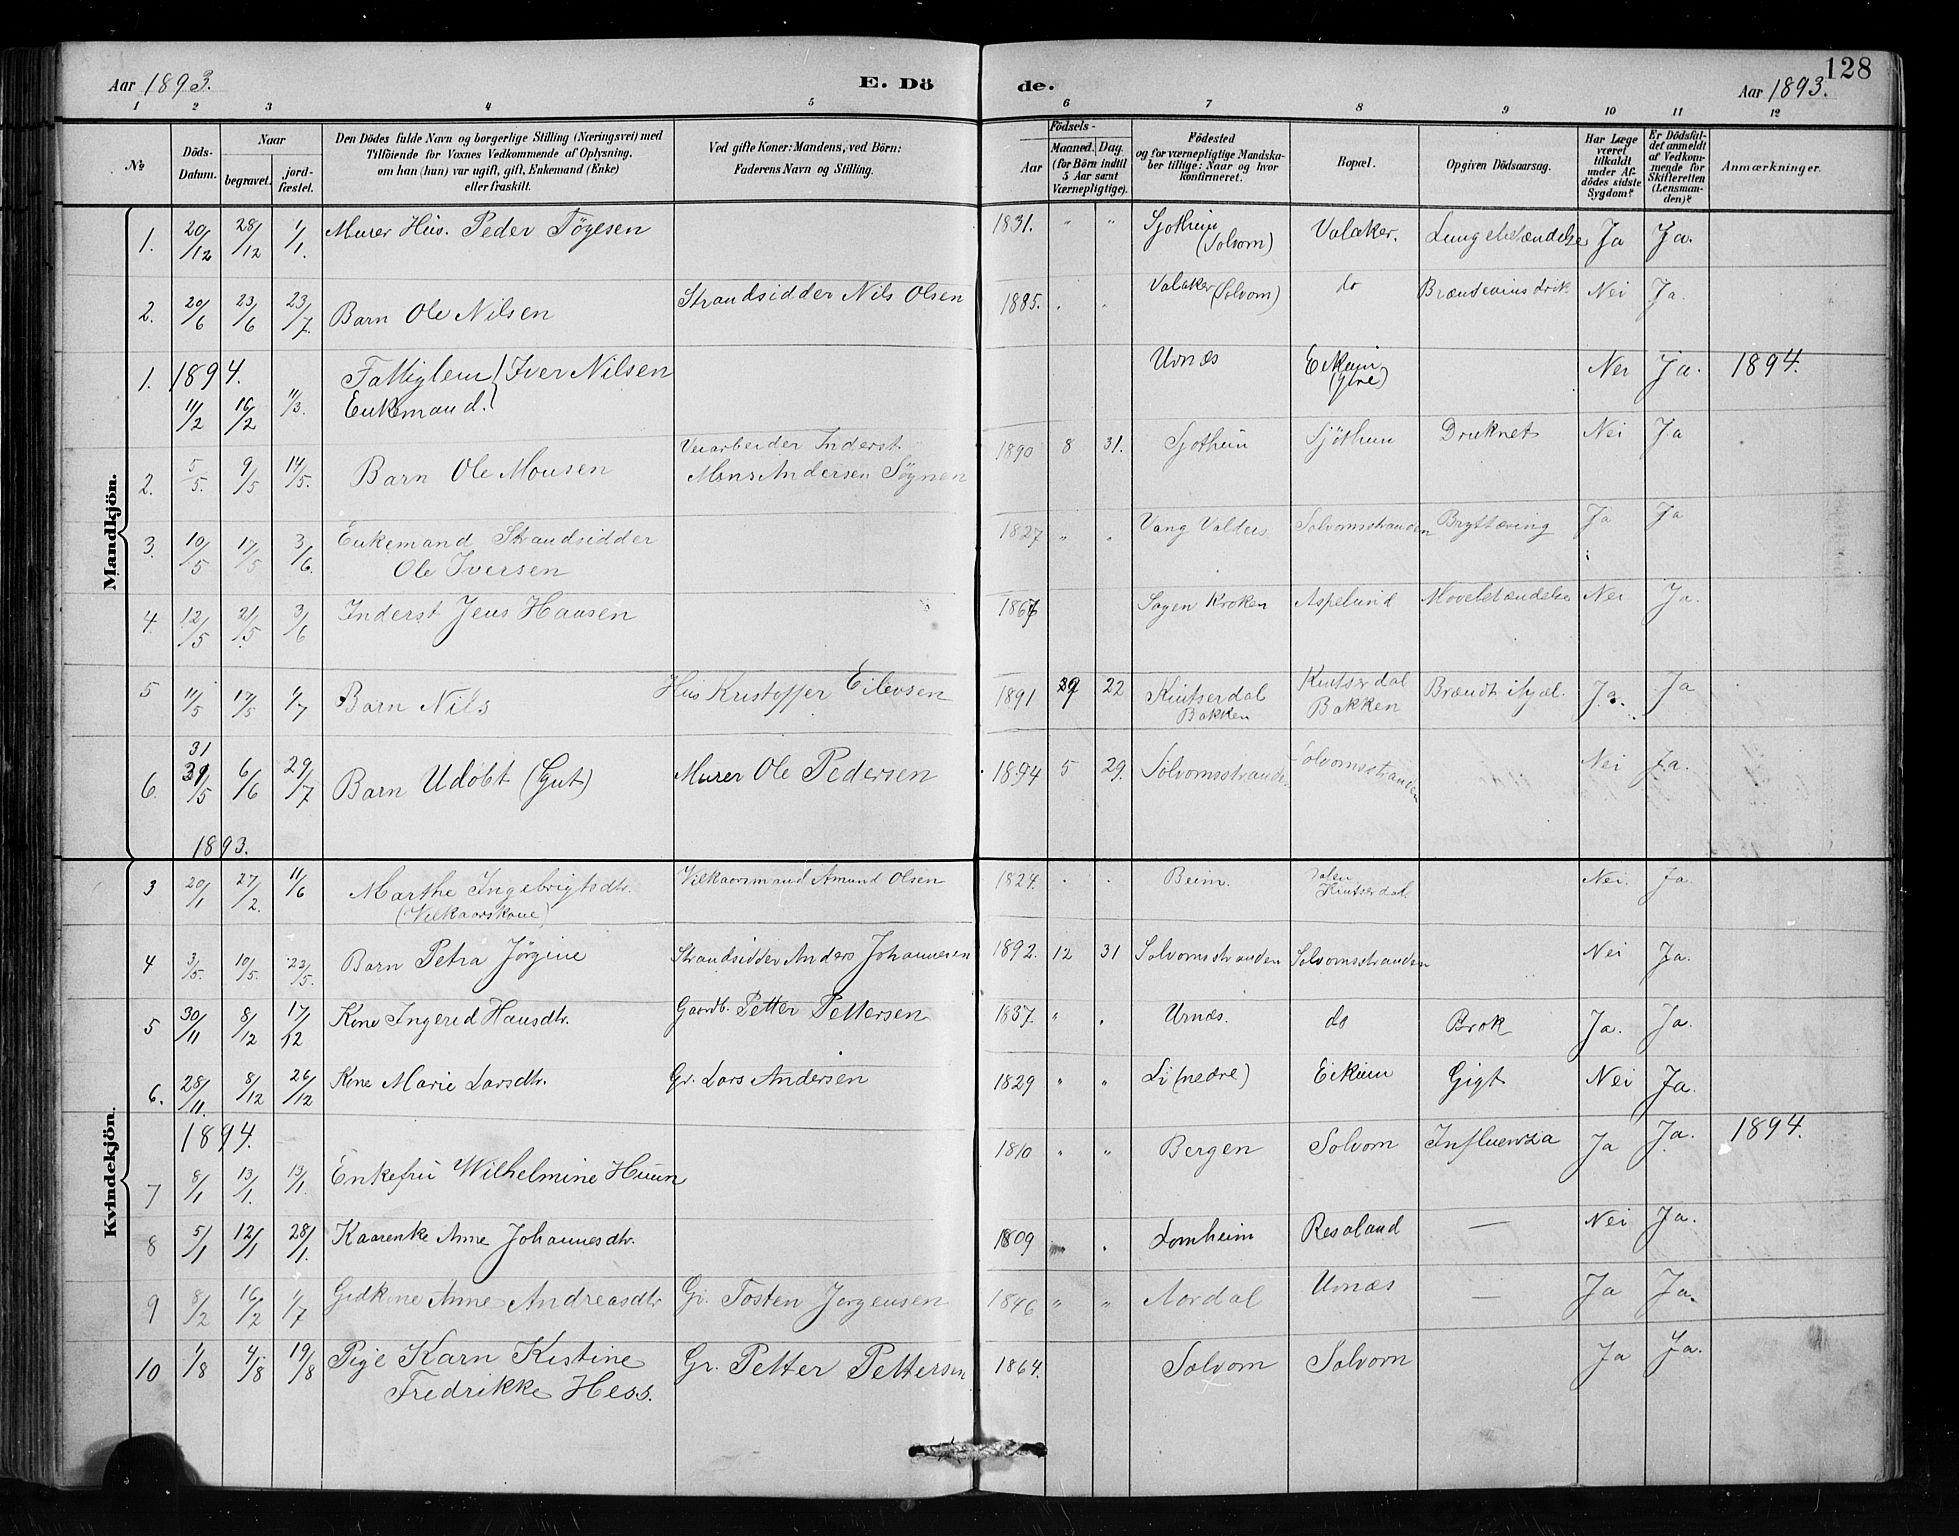 Aar 1893. E. Dö de. Aar 1893. 128
1 2 3 4 5 6 7 8 9 10 11 12
No
Döds-Datum.
Naar begravet. jordfæstet.
Den Dödes fulde Navn og borgerlige Stilling (Næringsvei) med
Tilföiende for Voxnes Vedkommende af Oplysning.
om han (hun) var ugift, gift, Enkemand (Enke)
eller fraskilt.
Ved gifte Koner: Mandens, ved Börn:
Faderens Navn og Stilling.
Födsels-
Aar Maaned. Dag.
(for Börn indtil
5 Aar samt
Værnepligtige).
Födested
og for værnepligtige Mandska-
ber tillige: Naar og hvor
konfirmeret.
Bopæl.
Opgiven Dödsaarsag.
Har Læge
været
tilkaldt
under Af-
dödes sidste
Sygdom?
Er Dödsfal-
det anmeldt
af Vedkom-
mende for
Skifteretten
(Lensman-
den)?
Anmærkninger.
Mandkjön.
1. 20/12 28/12 1/1. Murer Hus. Peder Tögesen 1831. " " Sjothun (Solvorn) Valaker. Lungebetændelse Ja Ja.
2. 20/6 23/6 23/7 Barn Ole Nilsen Strandsidder Nils Olsen 1885. Valaker (Solvorn) do Brændevinsdrik Nei Ja.
1. 1894. Fattiglem Iver Nilsen Urnæs Eikum (Ytre) Nei Ja. 1894.
11/2 16/2 11/3. Enkemand.
2. 5/5. 9/5 14/5. Barn Ole Monsen Veiarbeider Inderst.
Mons Andersen Søgnen 1890 8 31. Sjothun Sjöthun Druknet Nei Ja
3. 10/5 17/5 3/6. Enkemand Strandsidder
Ole Iversen 1827 " " Vang Valders Solvornsstranden Brysttæring Ja Ja
4. 12/5 21/5 3/6 Inderst Jens Hansen 1867 Sogen Kroken Aspelund Mavebetændelse Nei Ja.
5 11/5 17/5 1/7 Barn Nils Hus Kristoffer Eilevsen 1891 9 22 Kintserdal
Bakken Kintserdal
Bakken Brændt ihjel. Ja. Ja
6. 31/5 6/6 29/7 Barn Udöbt (Gut) Murer Ole Pedersen 1894 5 29. Solvornsstranden Solvornsstranden Nei Ja.
1893.
Kvindekjön.
3 20/1 27/2. 11/6 Marthe Ingebrigtsdtr.
(Vilkaarskone) Vilkaarsmand Amund Olsen 1824. Beim. Kintserdal. Nei. Ja.
4 3/5. 10/5. 23/5. Barn Petra Jørgine Strandsidder Anders Johannesen 1892. 12 31 Solvornsstranden Solvornsstranden Nei Ja.
5 30/11 8/12 17/12 Kone Ingerid Hansdtr. Gaardb. Petter Pettersen 1837. " Urnæs. do Brok Ja. Ja.
6. 28/11. 8/12 26/12 Kone Marie Larsdtr. Gr. Lars Andersen 1829 " " Li (nedre) Eikum Gigt Nei Ja.
1894.
7 8/1 13/1. 13/1. Enkefru Wilhelmine Huun 1810 " " Bergen Solvorn Influenza Ja Ja. 1894.
8 5/1 12/1 28/1. Kaarenke Anne Johannesdtr. 1809 Lomheim Resaland — Nei Ja.
9 8/2 16/2 1/7 Grdkone Anne Andreasdtr Gr. Tosten Jørgensen 1846 " " Aardal Urnæs — Ja Ja.
10 1/8 4/8 19/8 Pige Karn Kistine
Fredrikke Hess. Gr. Petter Pettersen 1864. Solvorn Solvorn Ja Ja.